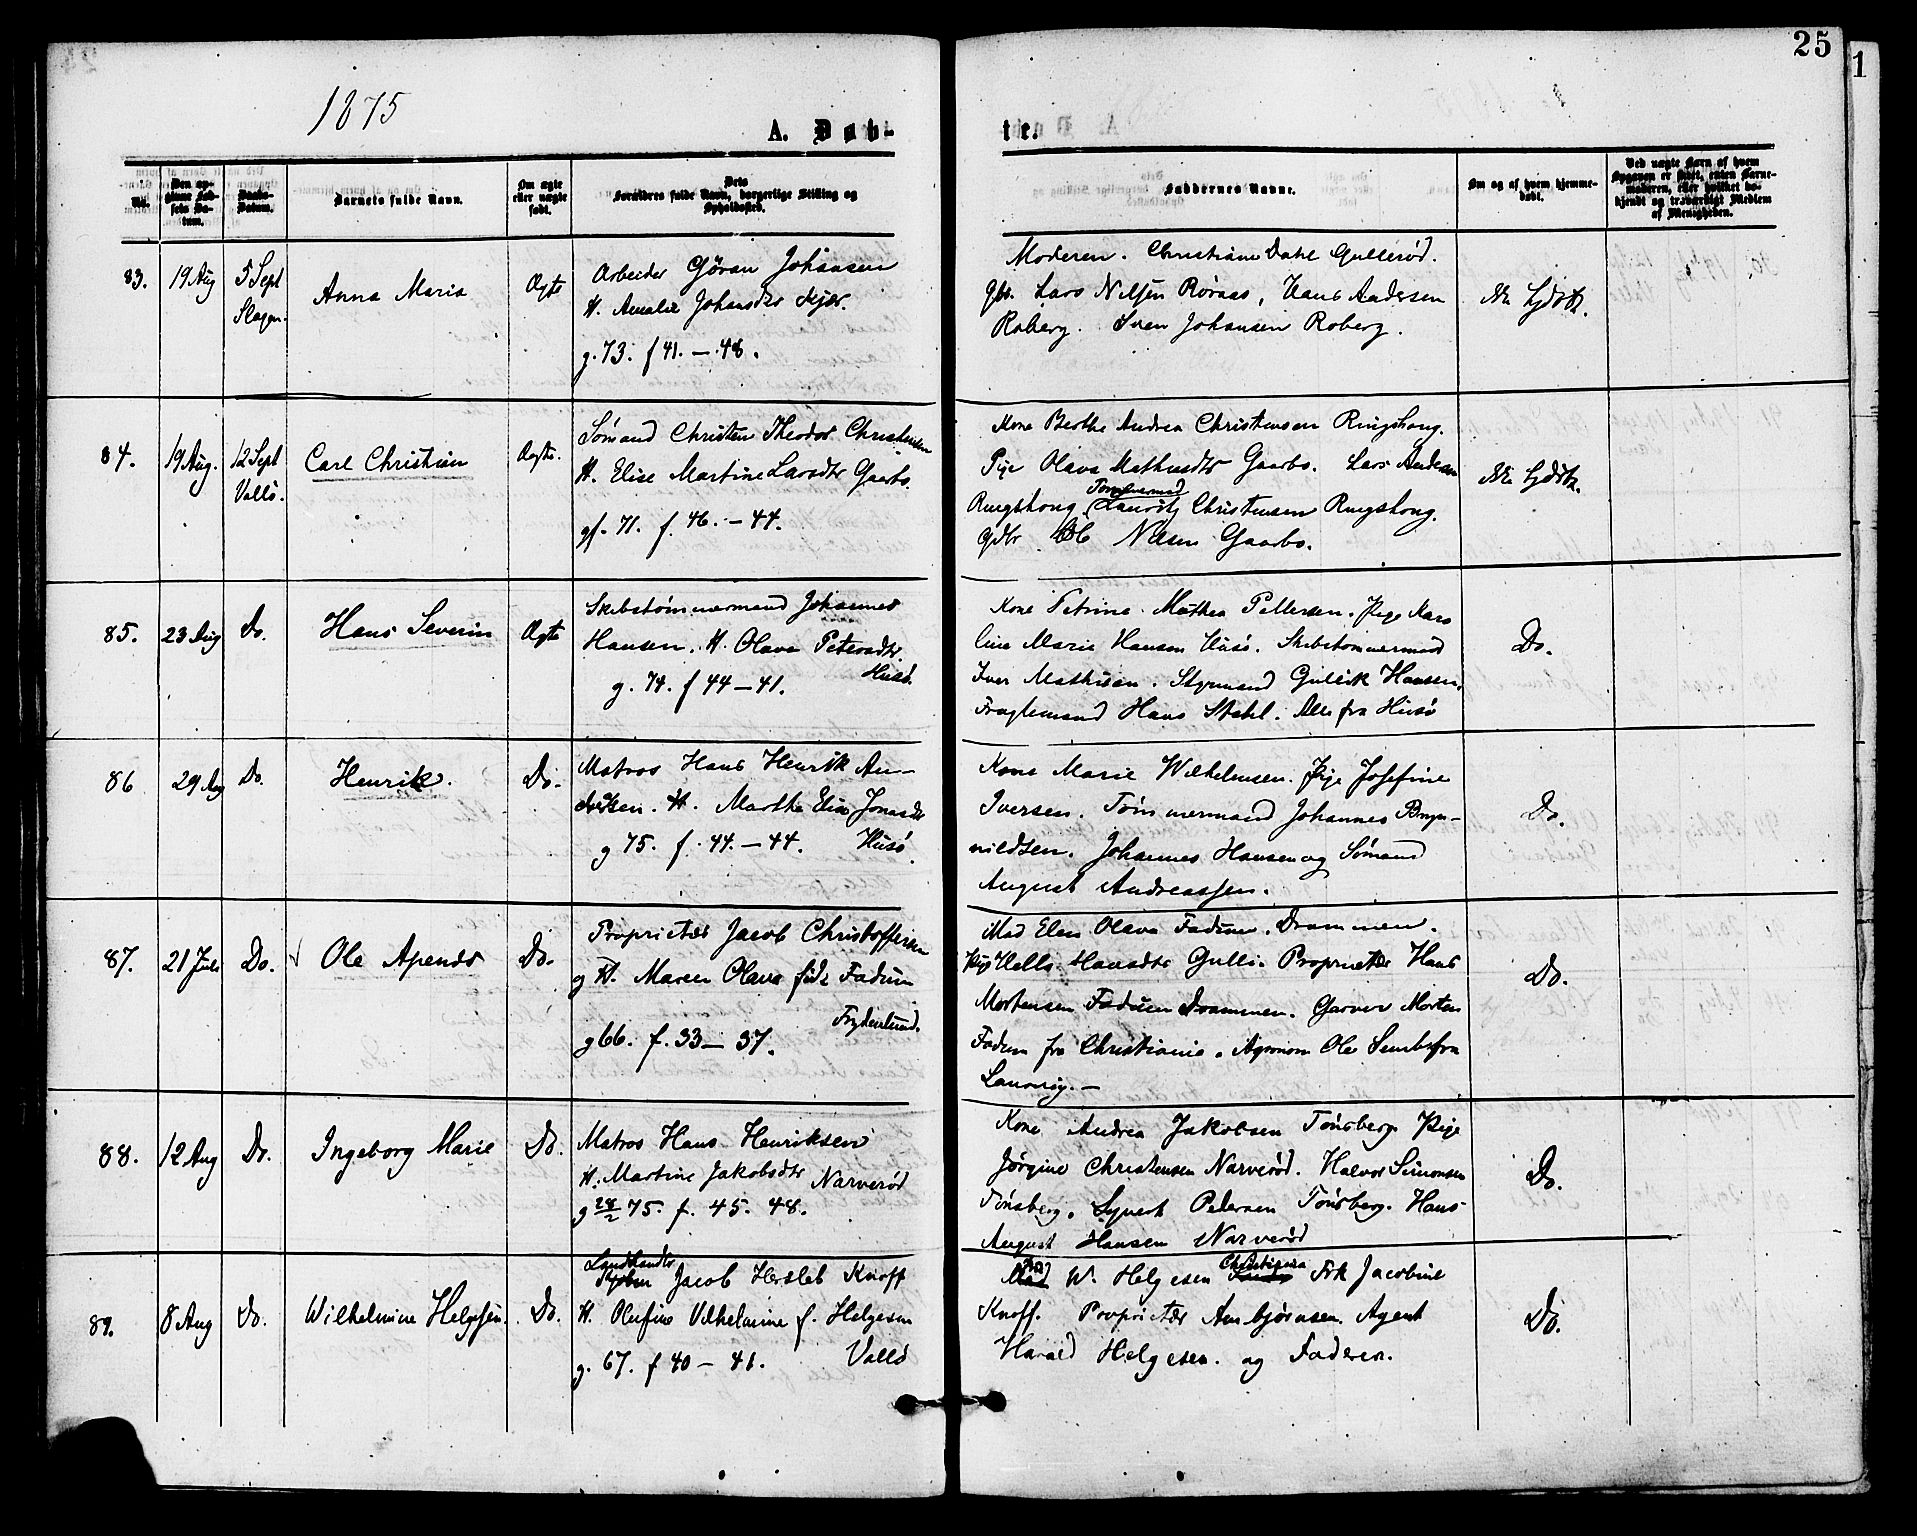 25
1
1875
A. Døb-
te.
No.
Den op-
givne Fød-
sels Da-
tum.
Daabs-
Datum.
Barnets fulde Navn.
Om ægte
eller uægte
født.
Dets
Forældres fulde Navn, borgerlige Stilling og
Opholdssted.
Faddernes Navne.
Om og af hvem hjemme-
døbt.
Ved uægte Barn af hvem
Opgaven er skeet, enten Barne-
moderen, eller hvilket be-
kjendt og troværdigt Medlem
af Menigheden.
83.
19 Aug
5 Sept
Slagen.
Anna Maria
Ægte
Arbeider Gøran Johansen
H. Amalie Johansdtr Kjær.
g. 73. f 41. – 48.
Moderen. Christiane Dahl Gullerød.
Gbr. Lars Nilsen Røraas, Hans Andersen
Roberg. Sven Johansen Roberg.
Ikke hjdøbt.
84.
19 Aug.
12 Sept
Vallø.
Carl Christian
Ægte.
Sømand Christen Theodor Christensen
H. Elise Martine Larsdtr Gaarbo.
gf. 71. f. 46. – 44.
Kone Berthe Andrea Christensen Ringshoug.
Pige Olava Mathisdtr Gaarbo. Lars Andersen
Ringshoug, Tømmermand Lauritz Christensen Ringshoug.
Gdbr Ole Nilsen Gaarbo.
Ikke hjdøbt.
85.
23 Aug
Do.
Hans Severin
Ægte
Skibstømmermand Johannes
Hansen. H. Olava Petersdtr.
Husø.
g. 74. f 44 – 41.
Kone Petrine Mathea Pettersen. Pige Karo
line Marie Hansen Husø. Skibstømmermand
Iver Mathisen. Styrmand Gullik Hansen,
Fragtemand Hans Stahl. Alle fra Husø
Do.
86
29 Aug
Do.
Henrik.
Do.
Matros Hans Henrik An-
dersen. H. Marthe Elise Jonasdtr
g 75. f. 44. – 44. Husø.
Kone Marie Wilhelmsen. Pige Josefine
Iversen. Tømmermand Johannes Bryn-
nildsen. Johannes Hansen og Sømand
August Andreassen.
Do.
87.
21 Juli
Do.
Ole Apenes
Do.
Proprietær Jacob Christoffersen
og H. Maren Olava født Fadum
Frydenlund.
g 66. f. 33 – 37.
Mad Elen Olava Fadum. Drammen.
Pige Helle Hansdtr Gulli. Proprietær Hans
Mortensen Fadum Drammen. Garver Morten
Fadum fra Christiania. Agronom Ole Sembs fra
Laurvig. –
Do.
88.
12 Aug
Do.
Ingeborg Marie
Do.
Matros Hans Henriksen
H. Martine Jakobsdtr Narverød
g 28/2 75. f. 45. 48.
Kone Andrea Jakobsen Tønsberg. Pige
Jørgine Christensen Narverød. Halvor Simonsen
Tønsberg. Syvert Pedersen Tønsberg. Hans
August Hansen Narverød
Do.
89.
8 Aug
Do.
Wilhelmine Helgesen.
Do.
Landhandler
Jacob Hersleb Knoff
H. Olufine Vilhelmine f. Helgesen
g. 67. f 40 – 41. Vallø
W. Helgesen Christiania Frk Jacobine
Knoff. Proprietær Anbjørnsen. Agent
Harald Helgesen. og Faderen.
Do.